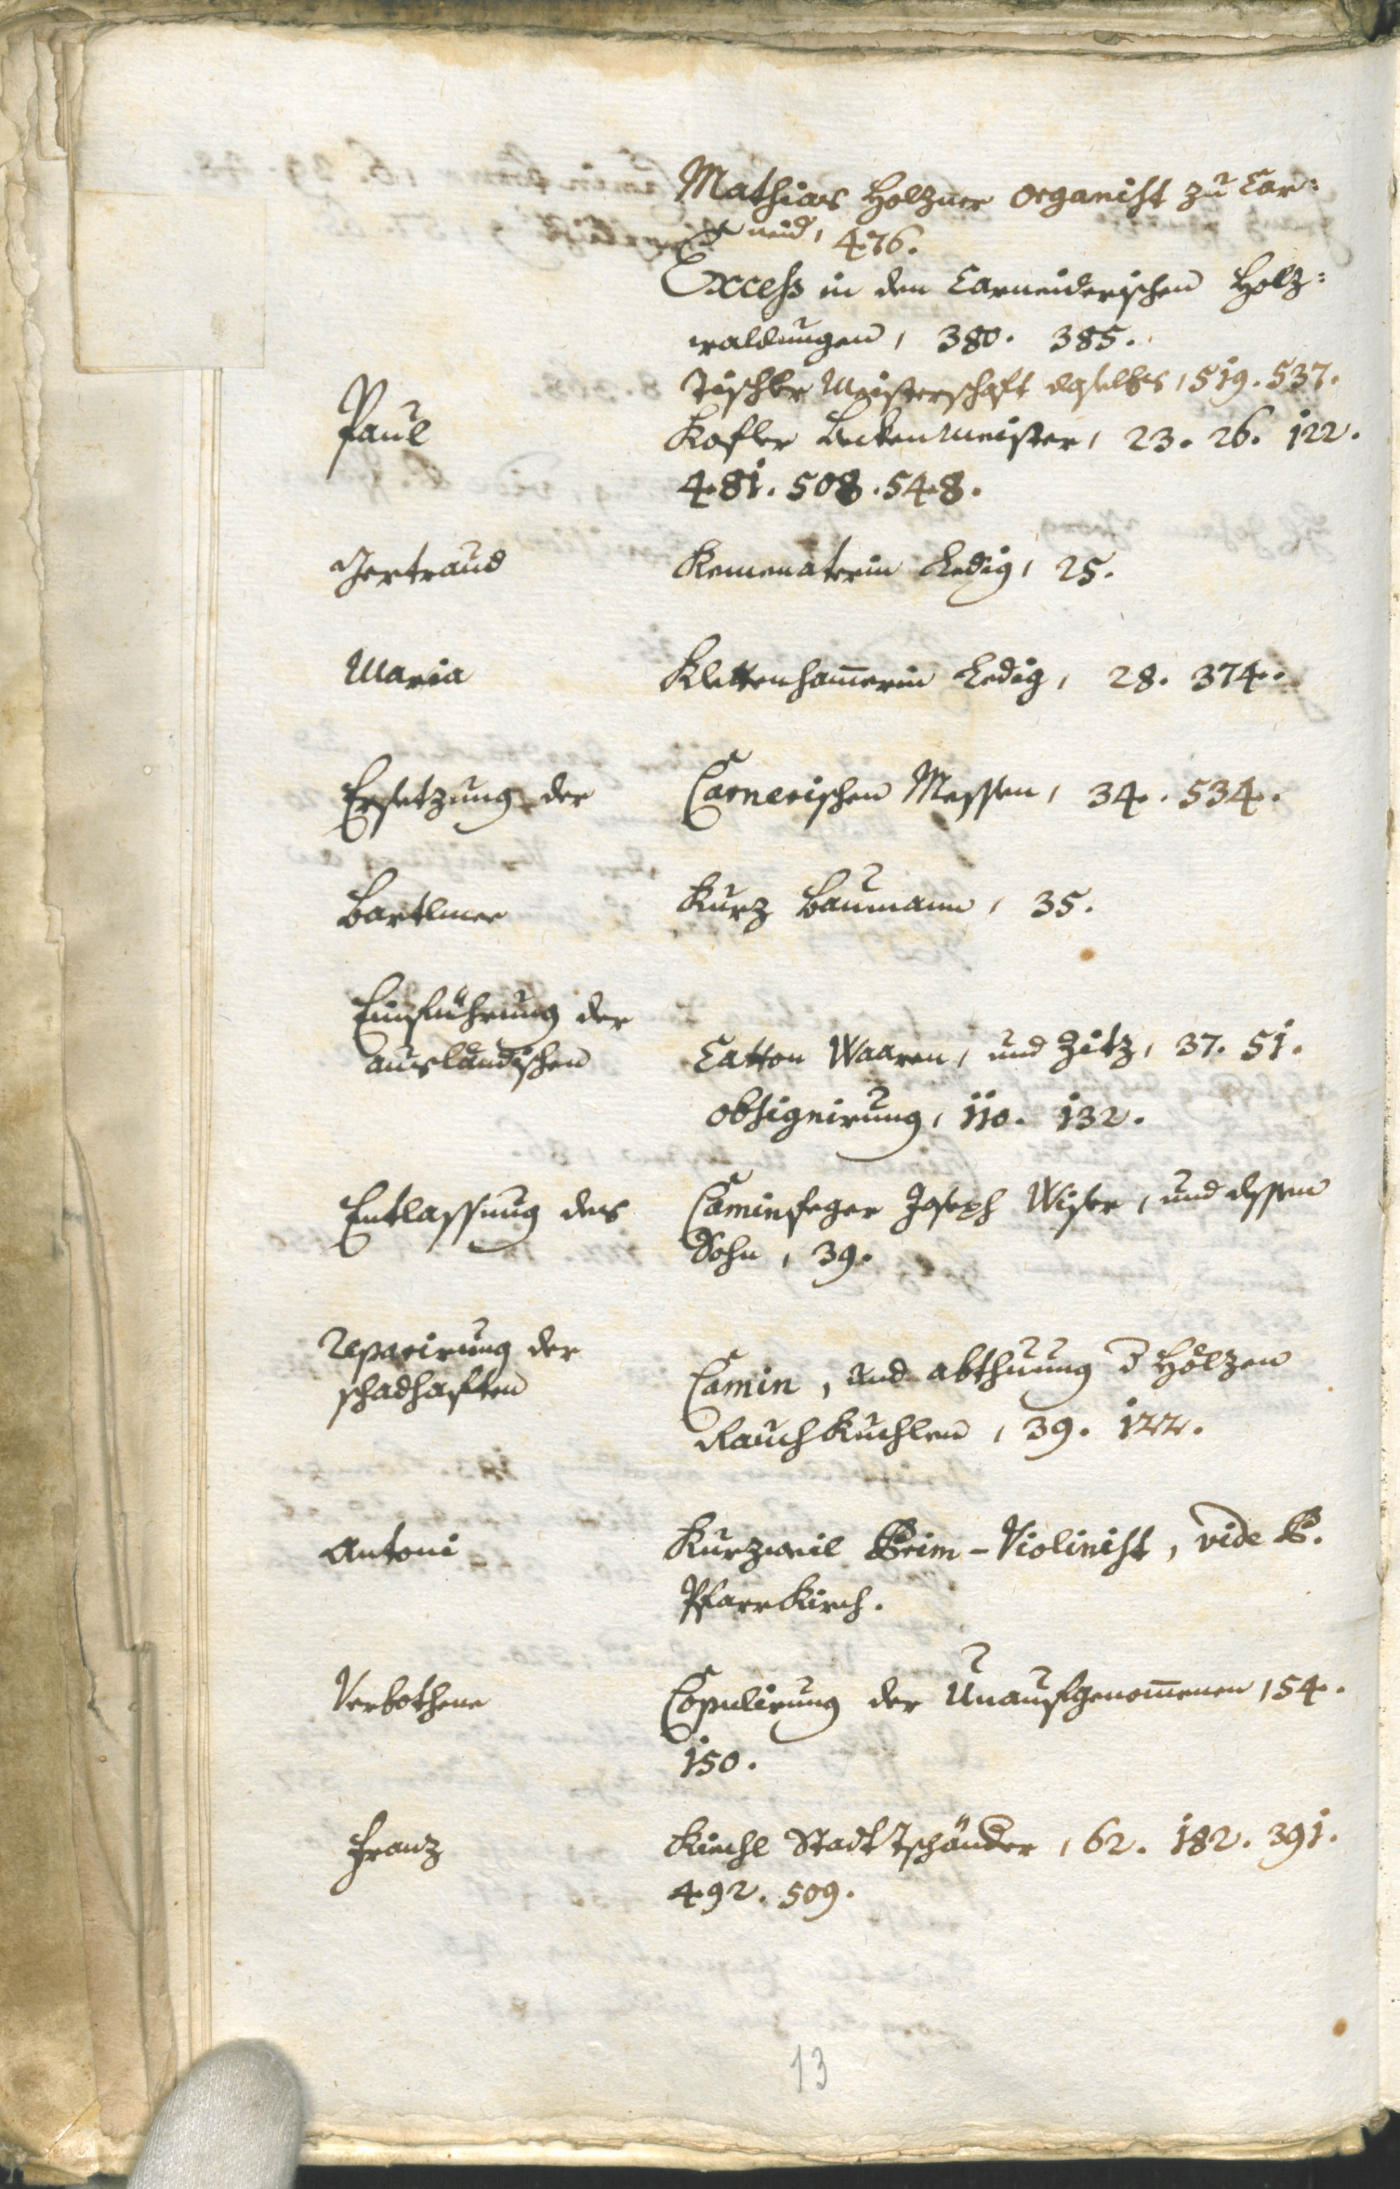 Mathias Holzner organist zu Car=
neid, 476.
Excess in den Carneiderischen Holz=
waldungen, 380. 385.
Tischler Meisterschafft daselbst, 519. 537.
Paul Kofler Beckenmeister, 23. 26. 122.
481. 508. 548.
Gertraud Kemenaterin Ledig, 25.
Maria Klettenhamerin Ledig, 28. 374.
Ersetzung der Carnerischen Messen, 34. 534.
Bartlmee Kurz Baumann, 35.
Einführung der
ausländischen Catton Waaren, und Zitz, 37. 51.
obsignirung, 110. 132.
Entlassung des Caminfeger Joseph Wiser, und dessen
Sohn, 39.
Reparirung der
schadhafften Camin, und abthuung d Hölzen
Rauchkuchlen, 39. 122.
Antoni Kurzweil Prim-Violinist, vide P.
Pfarrkirch.
Verbothene Copulirung der Unaufgenommenen, 54.
150.
Franz Kiechl Stadt Tschänder, 62. 182. 391.
492. 509.
13